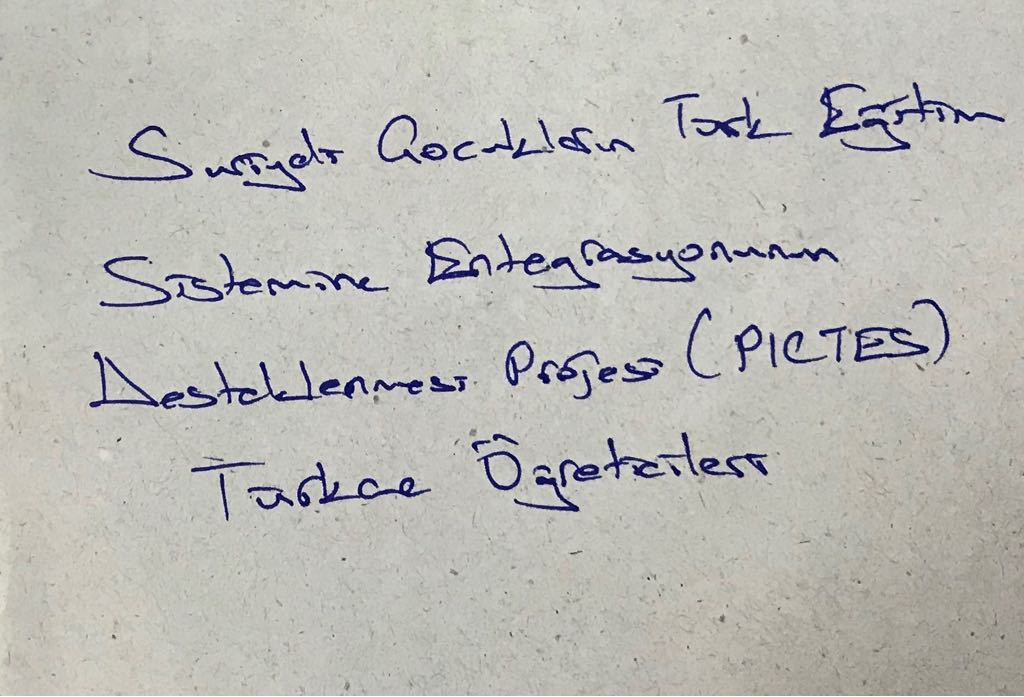 Suriyeli Çocukların Türk Eğitim
Sistemine Entegrasyonunun
Desteklenmesi Projesi (PICTES)
Türkçe Öğreticileri